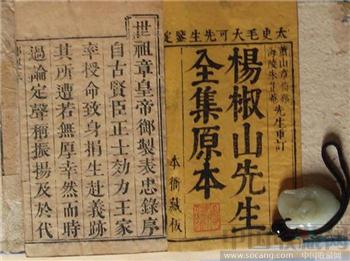 太史毛大可先生鑒定
蕭山章
海陵朱
先生重訂
楊椒山先生
全集原本
本衙藏板
世祖章皇帝御製表忠錄序
自古賢臣正士効力王家
幸授命致身捐生赴義跡
其所遭若無厚幸然而時
過論定聲稱振揚及於代
www.socang.com